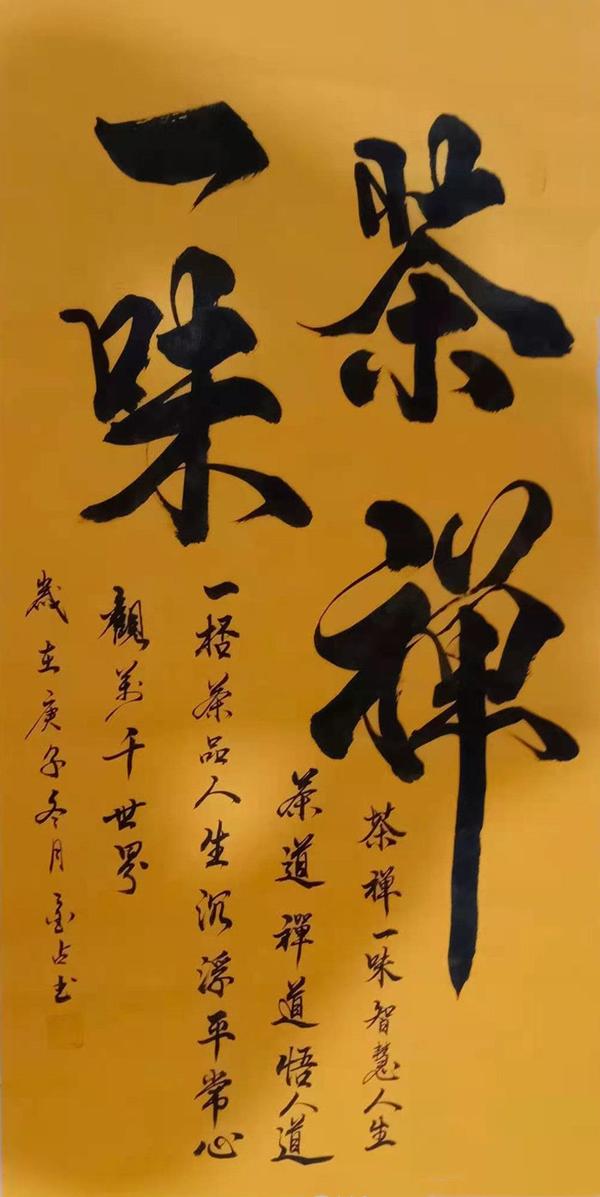 茶禅
一味
茶禪一味智慧人生
茶道禪道悟人道
一桮茶品人生沉浮平常心
觀萬千世界
歲在庚子冬月书